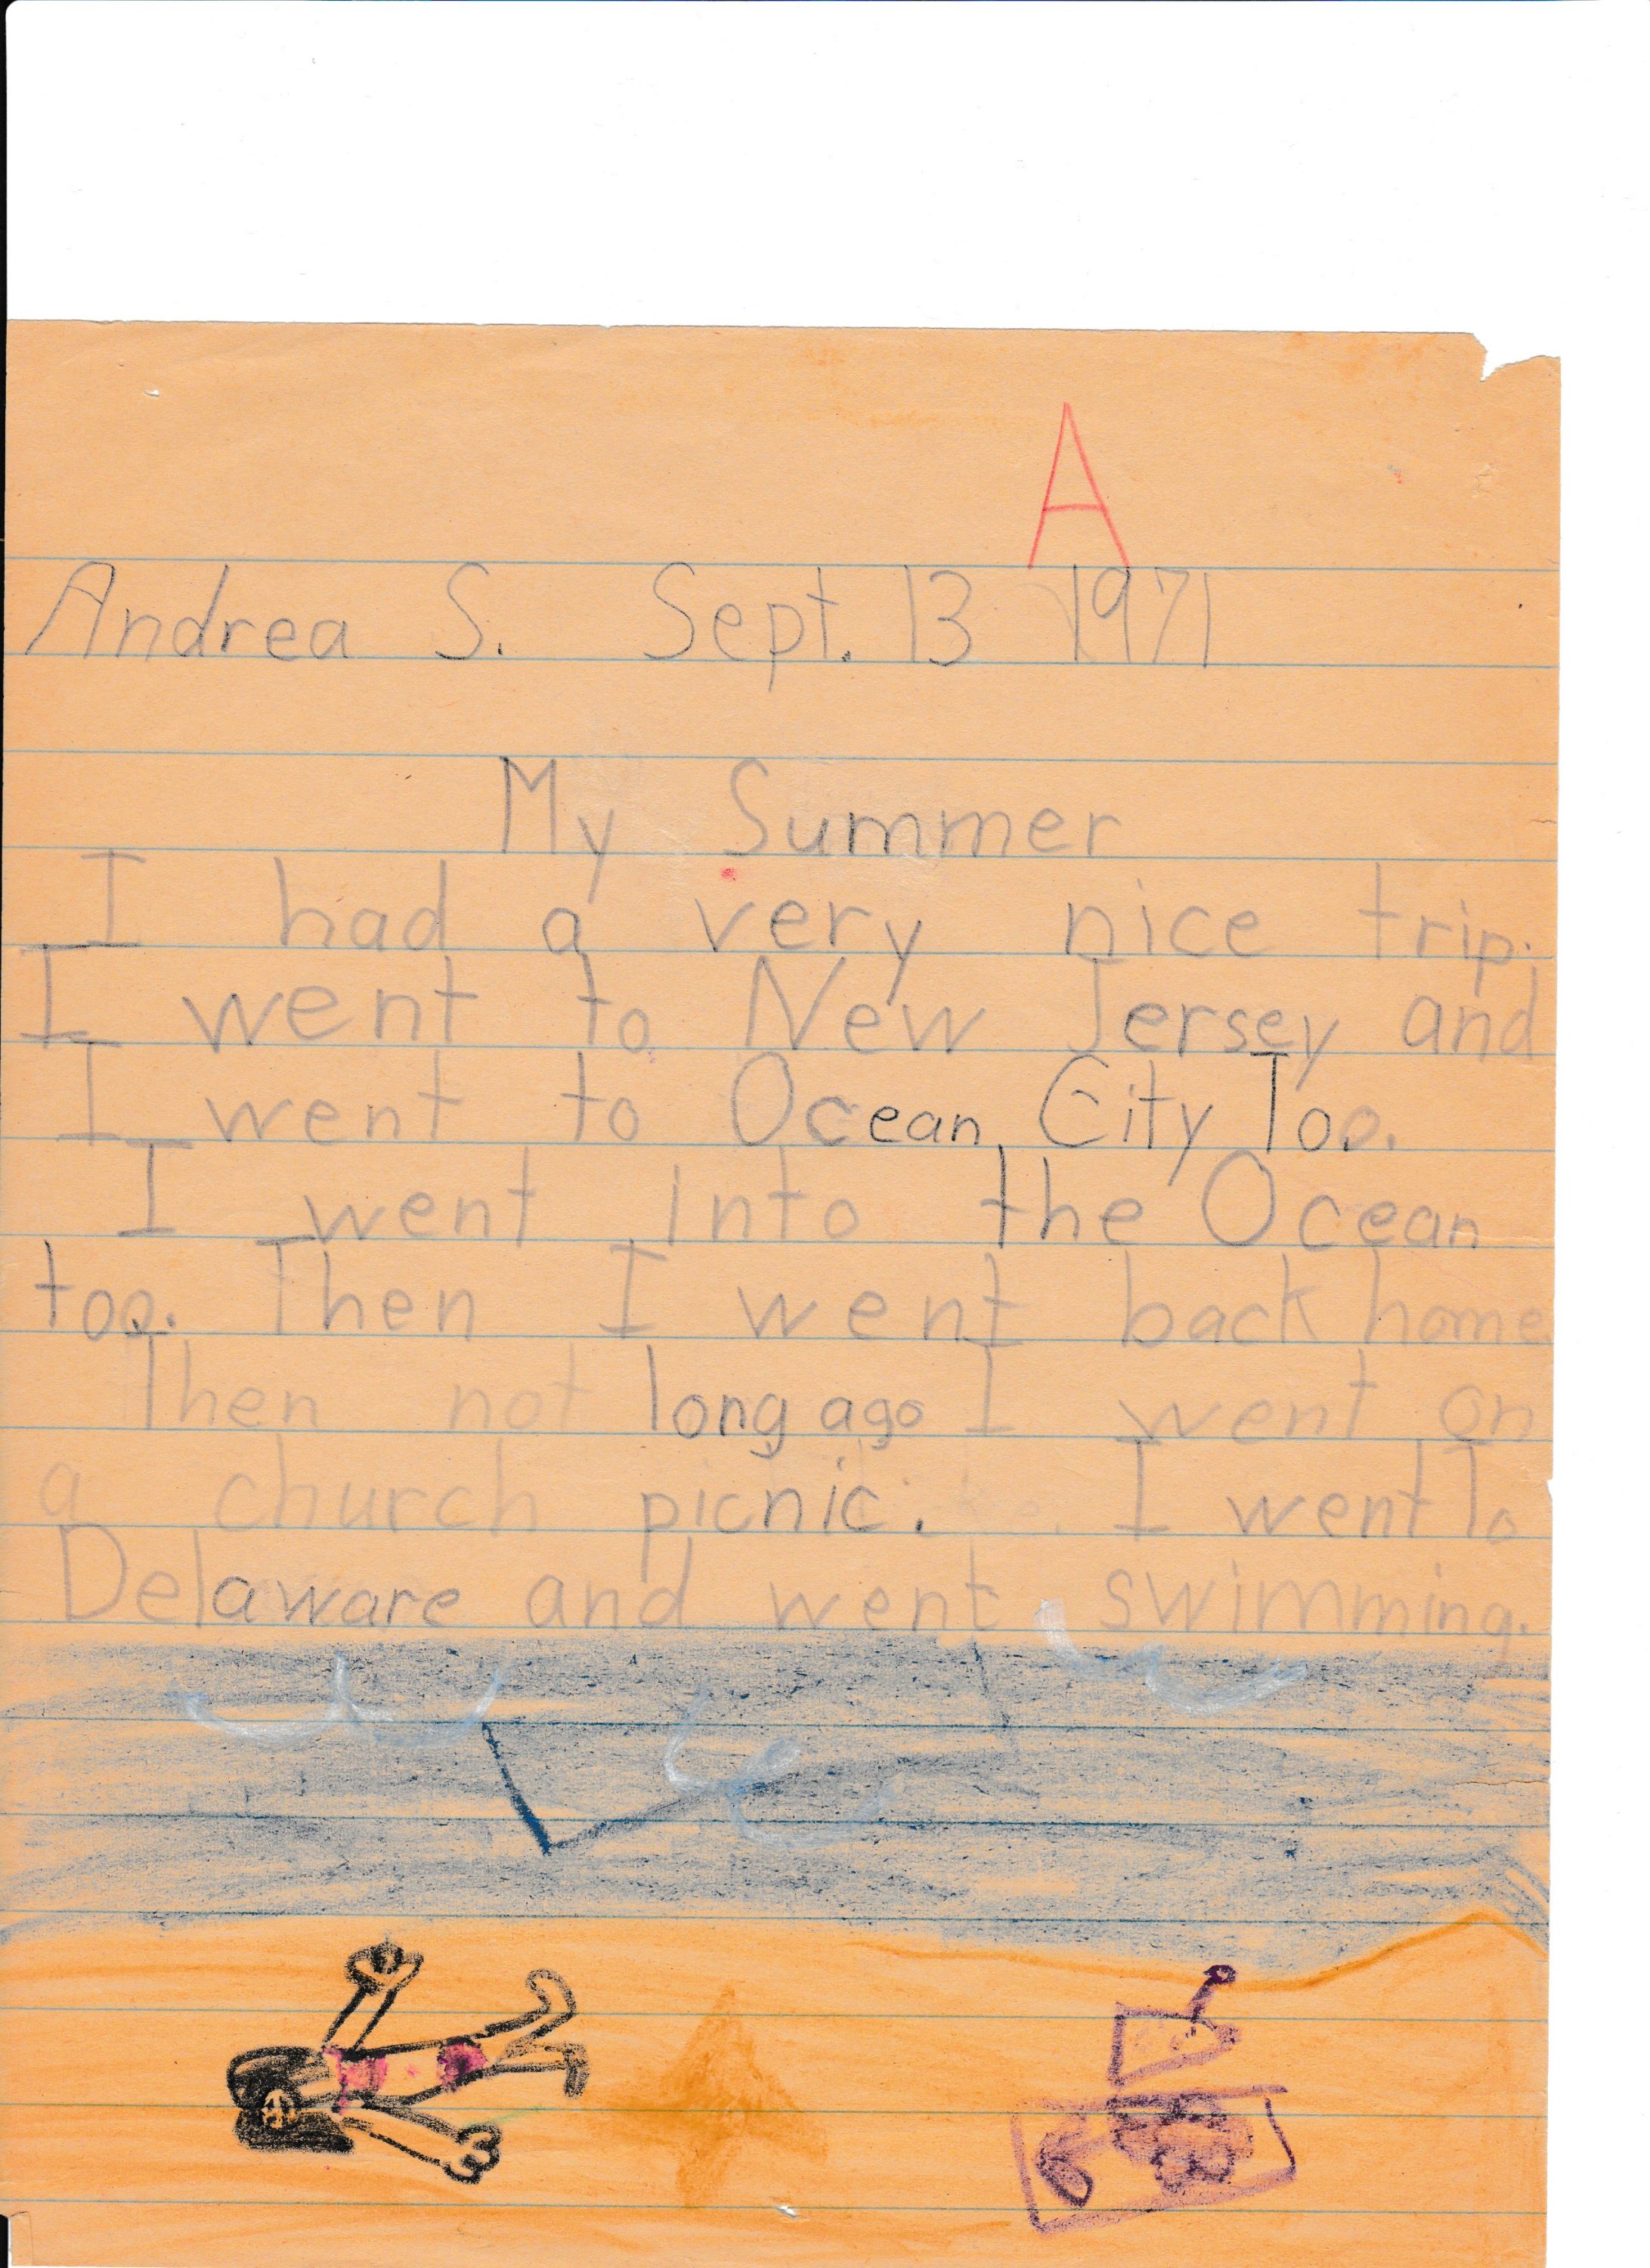 A
Andrea S. Sept. 13 1971
My Summer
I had a very nice trip.
I went to New Jersey and
I went to Ocean City Too.
I went into the Ocean
too. Then I went back home
Then not long ago I went on
a church picnic. I went To
Delaware and went swimming.